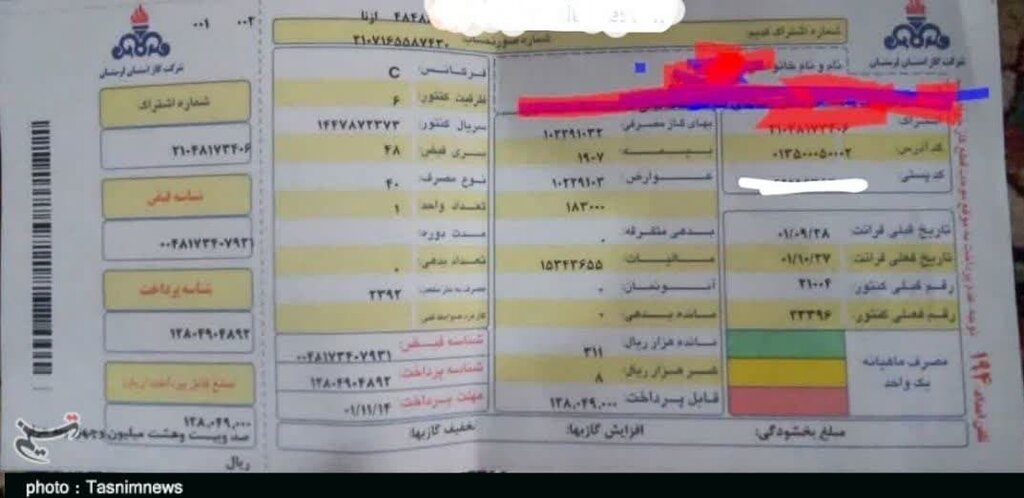 شماره اشتراک قدیم:
شماره صورتحساب: ۲۱۰۷۱۶۵۵۸۷۴۳۰
نام و نام خانو
اشتراک: ۲۱۰۴۸۱۷۳۴۰۶
کد آدرس: ۰۱۳۵۰۰۰۵۰۰۰۲
کد پستی:
تاریخ قبلی قرائت: ۰۱/۰۹/۲۸
تاریخ فعلی قرائت: ۰۱/۱۰/۲۷
رقم قبلی کنتور: ۲۱۰۰۴
رقم فعلی کنتور: ۲۳۳۹۶
مصرف ماهیانه
یک واحد
مبلغ بخشودگی:
بهای گاز مصرفی: ۱۰۲۲۹۱۰۳۲
بیمه: ۱۹۰۷
عوارض: ۱۰۲۲۹۱۰۳
۱۸۳۰۰۰
بدهی متفرقه: ۰
مالیات: ۱۵۳۴۳۶۵۵
آبونمان: ۰
مانده بدهی: ۰
مانده هزار ریال: ۳۱۱
کسر هزار ریال: ۸
قابل پرداخت: ۱۲۸,۰۴۹,۰۰۰
افزایش گازبها:
فرکانس: C
ظرفیت کنتور: ۶
سریال کنتور: ۱۴۴۷۸۷۲۳۷۳
سری قبض: ۴۸
نوع مصرف: ۴۰
تعداد واحد: ۱
مدت دوره:
تعداد بدهی: ۰
۲۳۹۲
شناسه قبض: ۰۰۴۸۱۷۳۴۰۷۹۳۱
شناسه پرداخت: ۱۲۸۰۴۹۰۴۸۹۲
مهلت پرداخت: ۰۱/۱۱/۱۴
تخفیف گازبها:
۰۰۲ ۰۰۱
شرکت گاز استان لرستان
شرکت گاز استان لرستان
شماره اشتراک
۲۱۰۴۸۱۷۳۴۰۶
شناسه قبض
۰۰۴۸۱۷۳۴۰۷۹۳۱
شناسه پرداخت
۱۲۸۰۴۹۰۴۸۹۲
مبلغ قابل پرداخت (ریال)
۱۲۸,۰۴۹,۰۰۰
صد وبیست وهشت میلیون وچهل
ریال
تلفن امداد ۱۹۴
تسنیم
photo : Tasnimnews